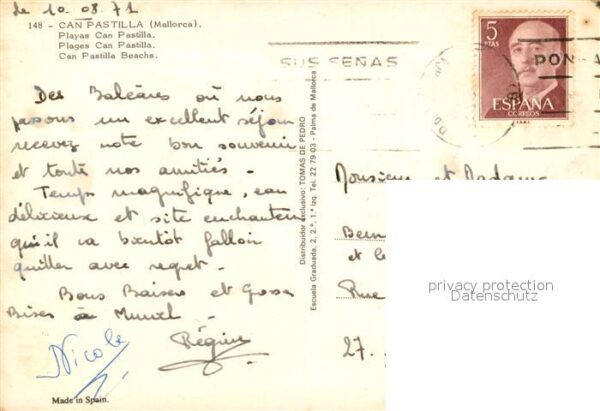 le 10.08.71
148 - CAN PASTILLA (Mallorca).
Playas Can Pastilla.
Plages Can Pastilla.
Can Pastilla Beachs.
Des Baléares où nous
passons un excellent séjour
recevez notre bon souvenir
et toute nos amitiés.
Temps magnifique, eau
délicieux et site enchanteur
qu'il va bientôt falloir
quitter avec regret.
Bons Baisers et Grosses
Bises à
Nicole
Régine
Made in Spain.
Distribuidor exclusivo: TOMAS DE PEDRO
Escuela Graduada, 2, 2.°, 1.° izq. Tel. 22 79 03 - Palma de Mallorca
SUS SEÑAS
PON
5
PTAS
ESPAÑA
CORREOS
Monsieur et Madame
et
Rue
27.
privacy protection
Datenschutz